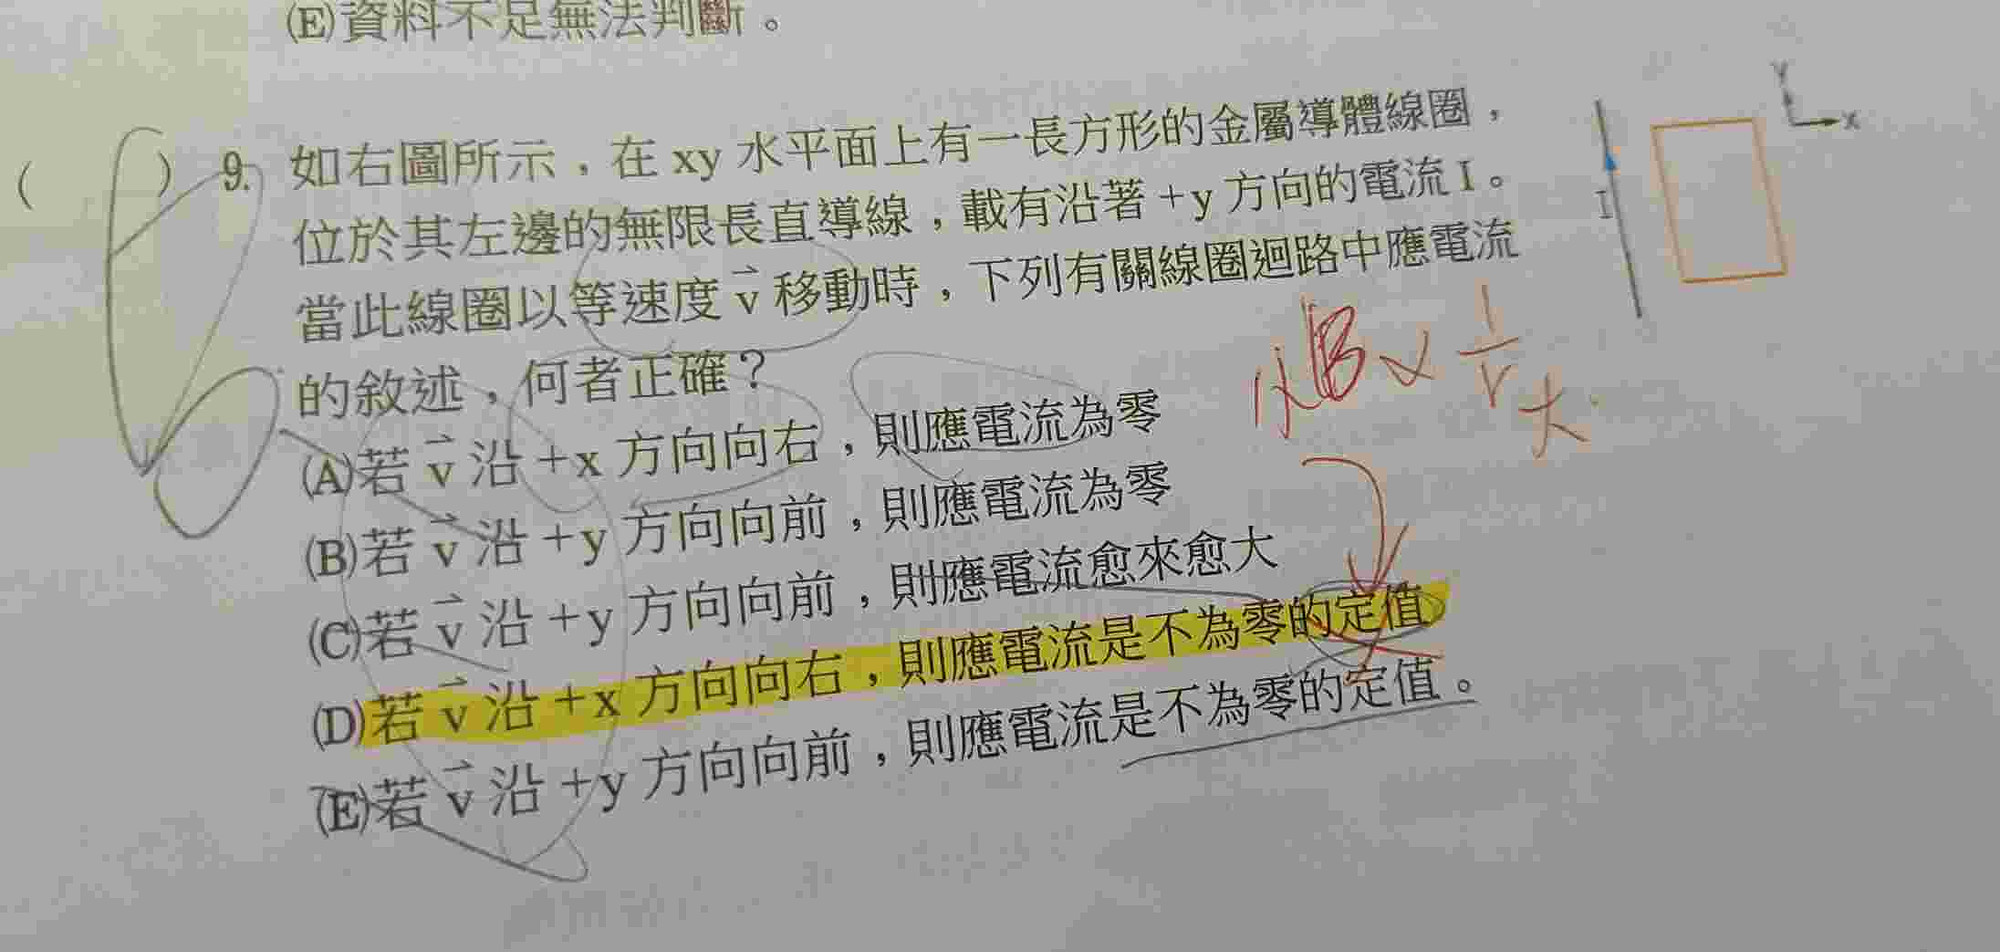 (E)資料不足無法判斷。
( ) 9. 如右圖所示，在 xy 水平面上有一長方形的金屬導體線圈，
位於其左邊的無限長直導線，載有沿著 +y 方向的電流 I。
當此線圈以等速度 v⃗ 移動時，下列有關線圈迴路中應電流
的敘述，何者正確？
(A)若 v⃗ 沿 +x 方向向右，則應電流為零
(B)若 v⃗ 沿 +y 方向向前，則應電流為零
(C)若 v⃗ 沿 +y 方向向前，則應電流愈來愈大
(D)若 v⃗ 沿 +x 方向向右，則應電流是不為零的定值
(E)若 v⃗ 沿 +y 方向向前，則應電流是不為零的定值。
I
y
x
小B ∝ 1/r 大